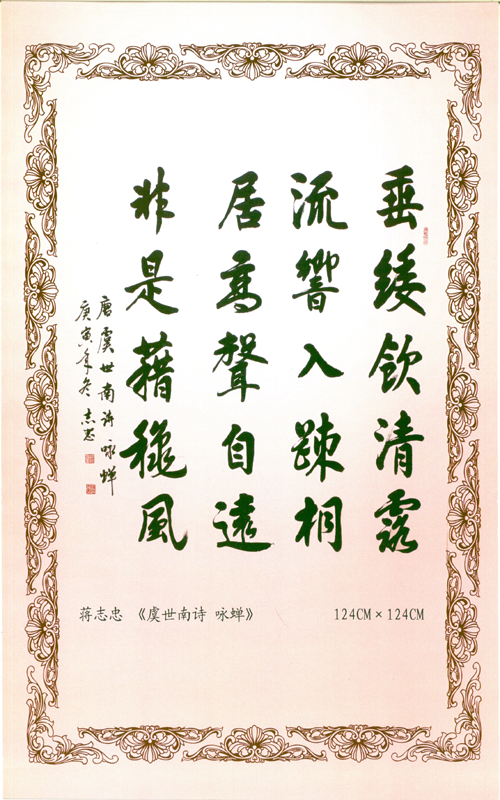 垂緌飲清露
流響入踈桐
居高聲自遠
非是藉穐風
唐虞世南诗咏蝉
庚寅年冬志忠
蒋志忠 《虞世南诗 咏蝉》 124CM×124CM